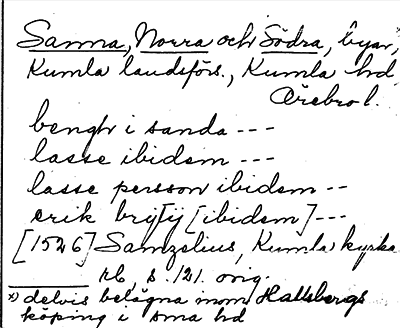 Sanna, Norra och Södra, byar,*)
Kumla landsförs., Kumla hd
Örebro l.
bengh i sanda ---
lasse ibidem ---
lasse persson ibidem --
erik [ibidem] ---
[1526] Samzelius, Kumla kyrka
rb, s. 121. orig.
*) delvis belägna inom Hallsbergs
köping i sma hd